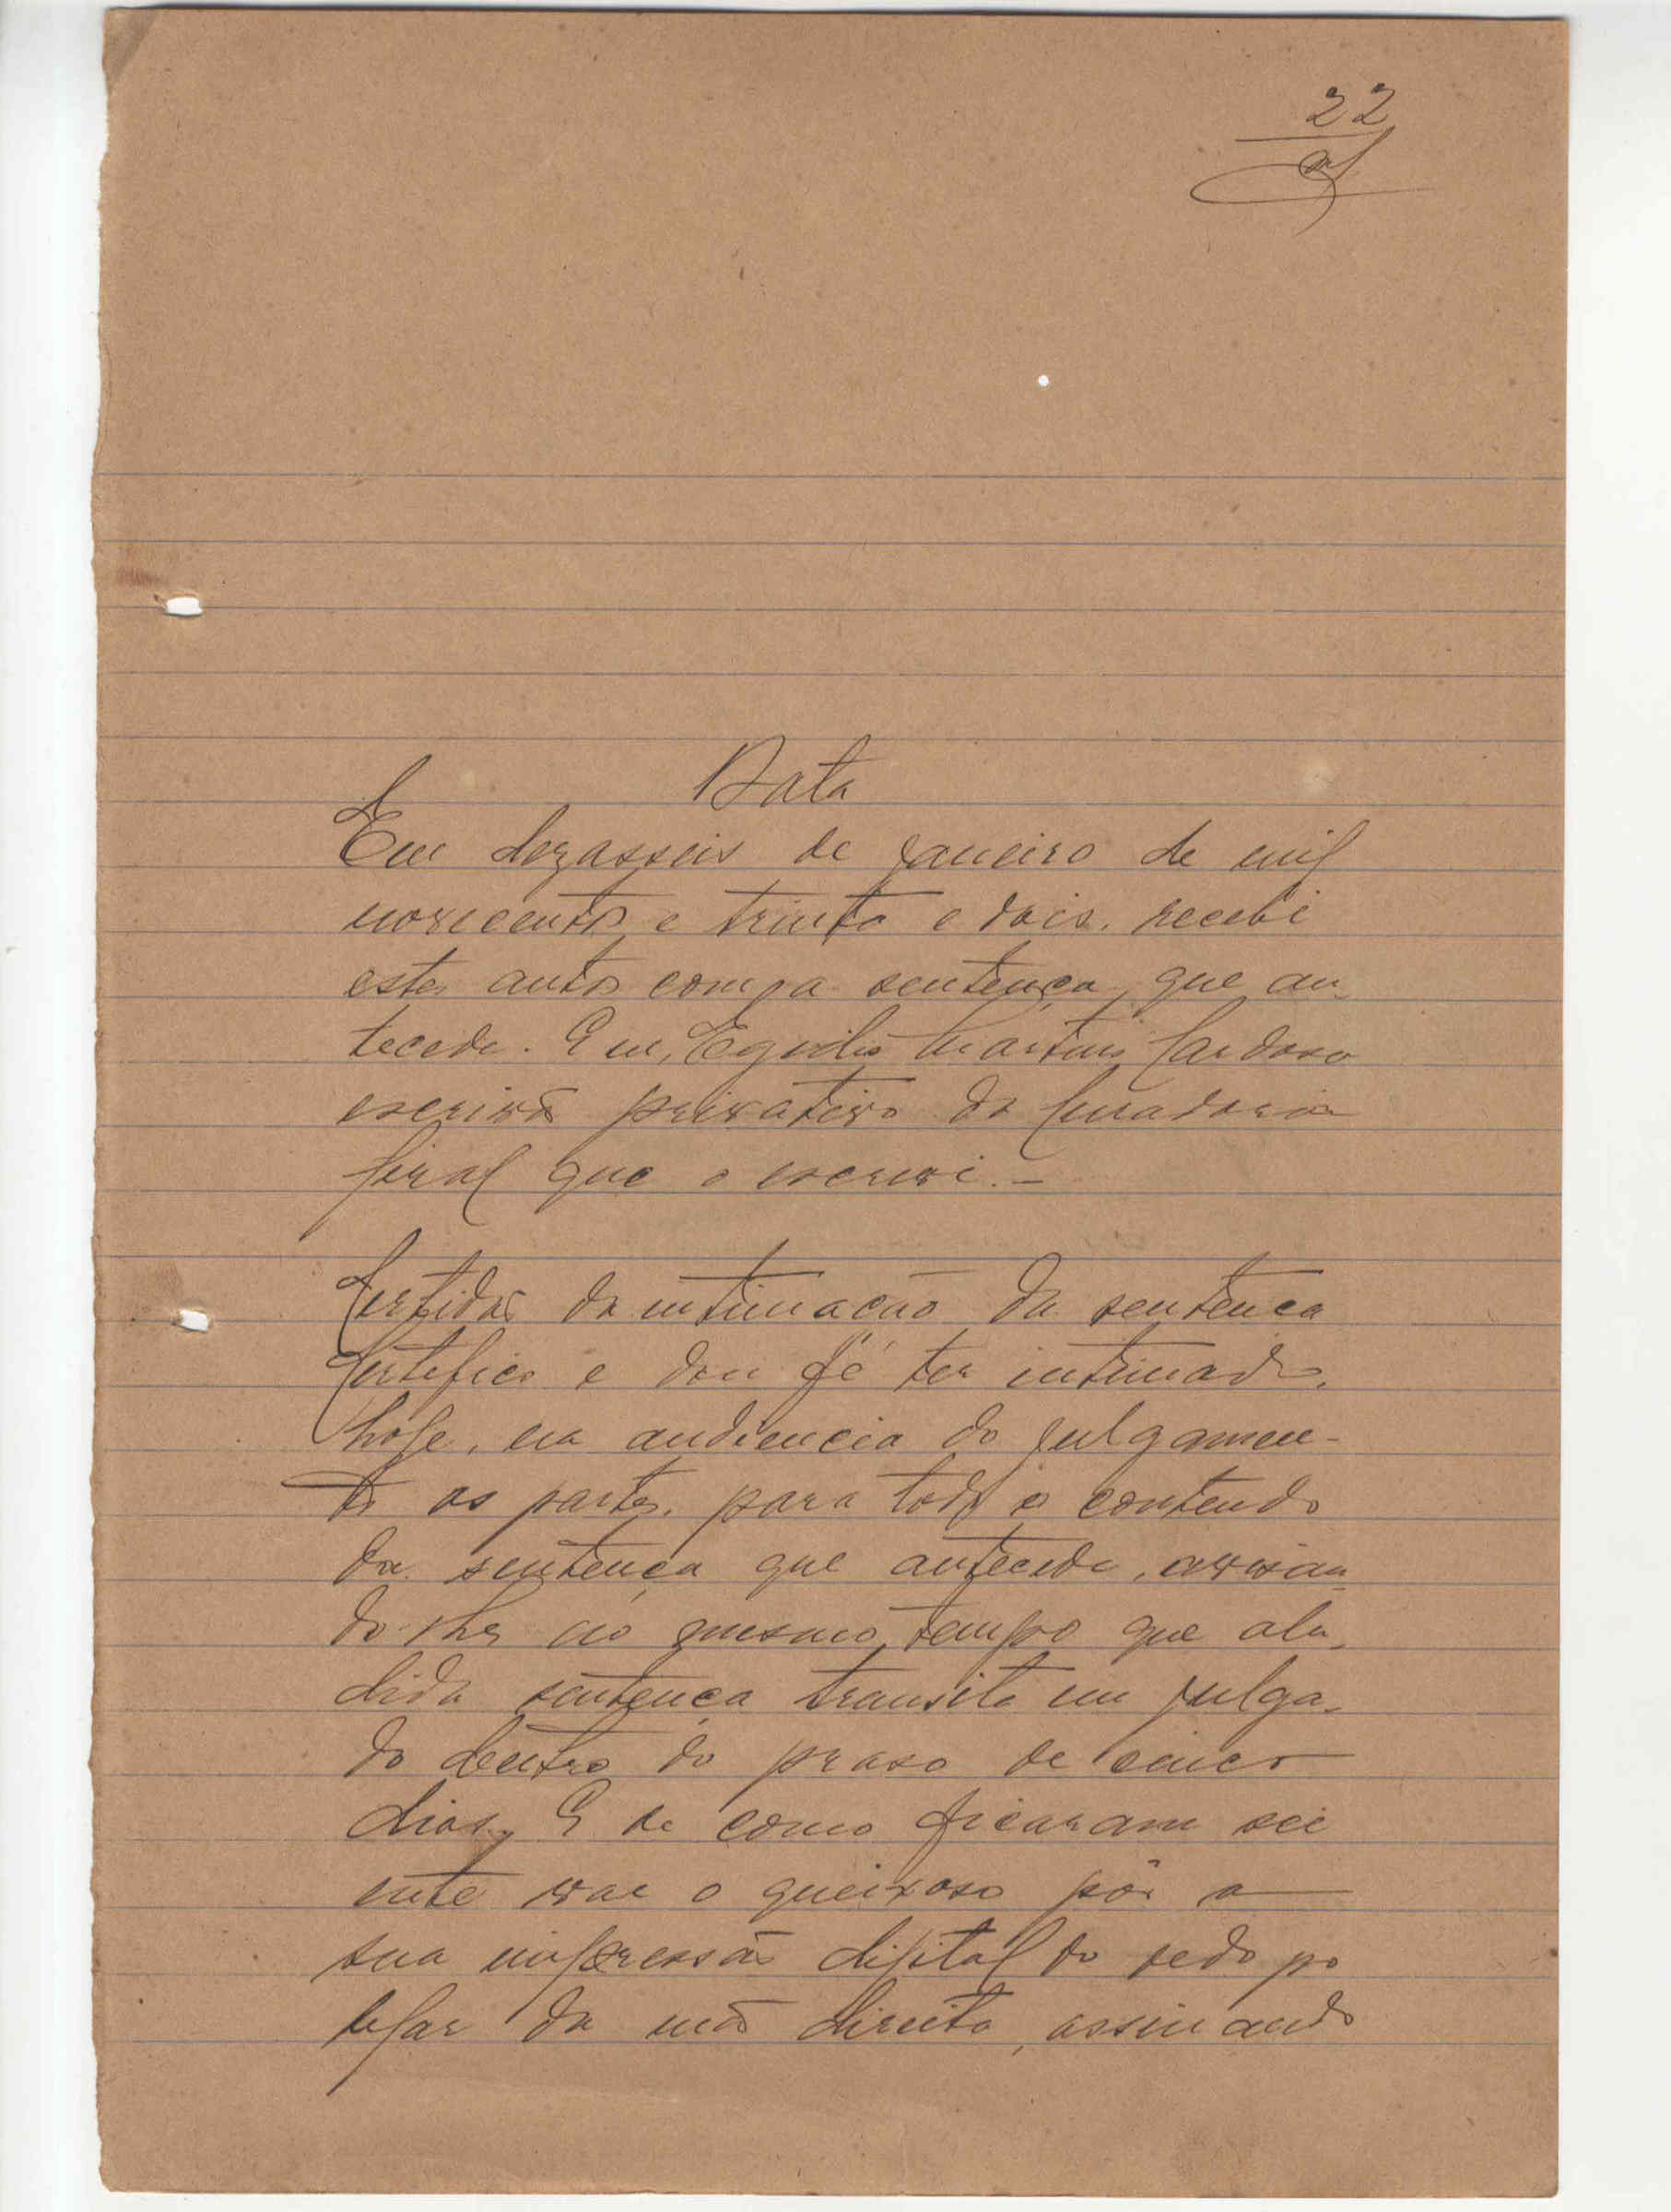 22
Data
Em dezasseis de Janeiro de mil
novecentos e trinta e dois, recebi
estes autos com a sentença, que an-
tecede. E eu, Egidio Martins Cardoso
escrivão privativo da Curadoria
Geral que o escrevi.-
Certidão da intimação da sentença
Certefico e dou fé ter intimado,
hoje, na audiencia do julgamen-
to as partes, para todo o conteudo
da sentença que antecede, avisan-
do-lhes ao mesmo tempo que alu-
dida sentença transita em julga-
do dentro do praso de cinco
dias, E de como ficaram sci
ente vae o queixoso pôr a
sua impressão digital do dedo po
legar da mão direita, assinando